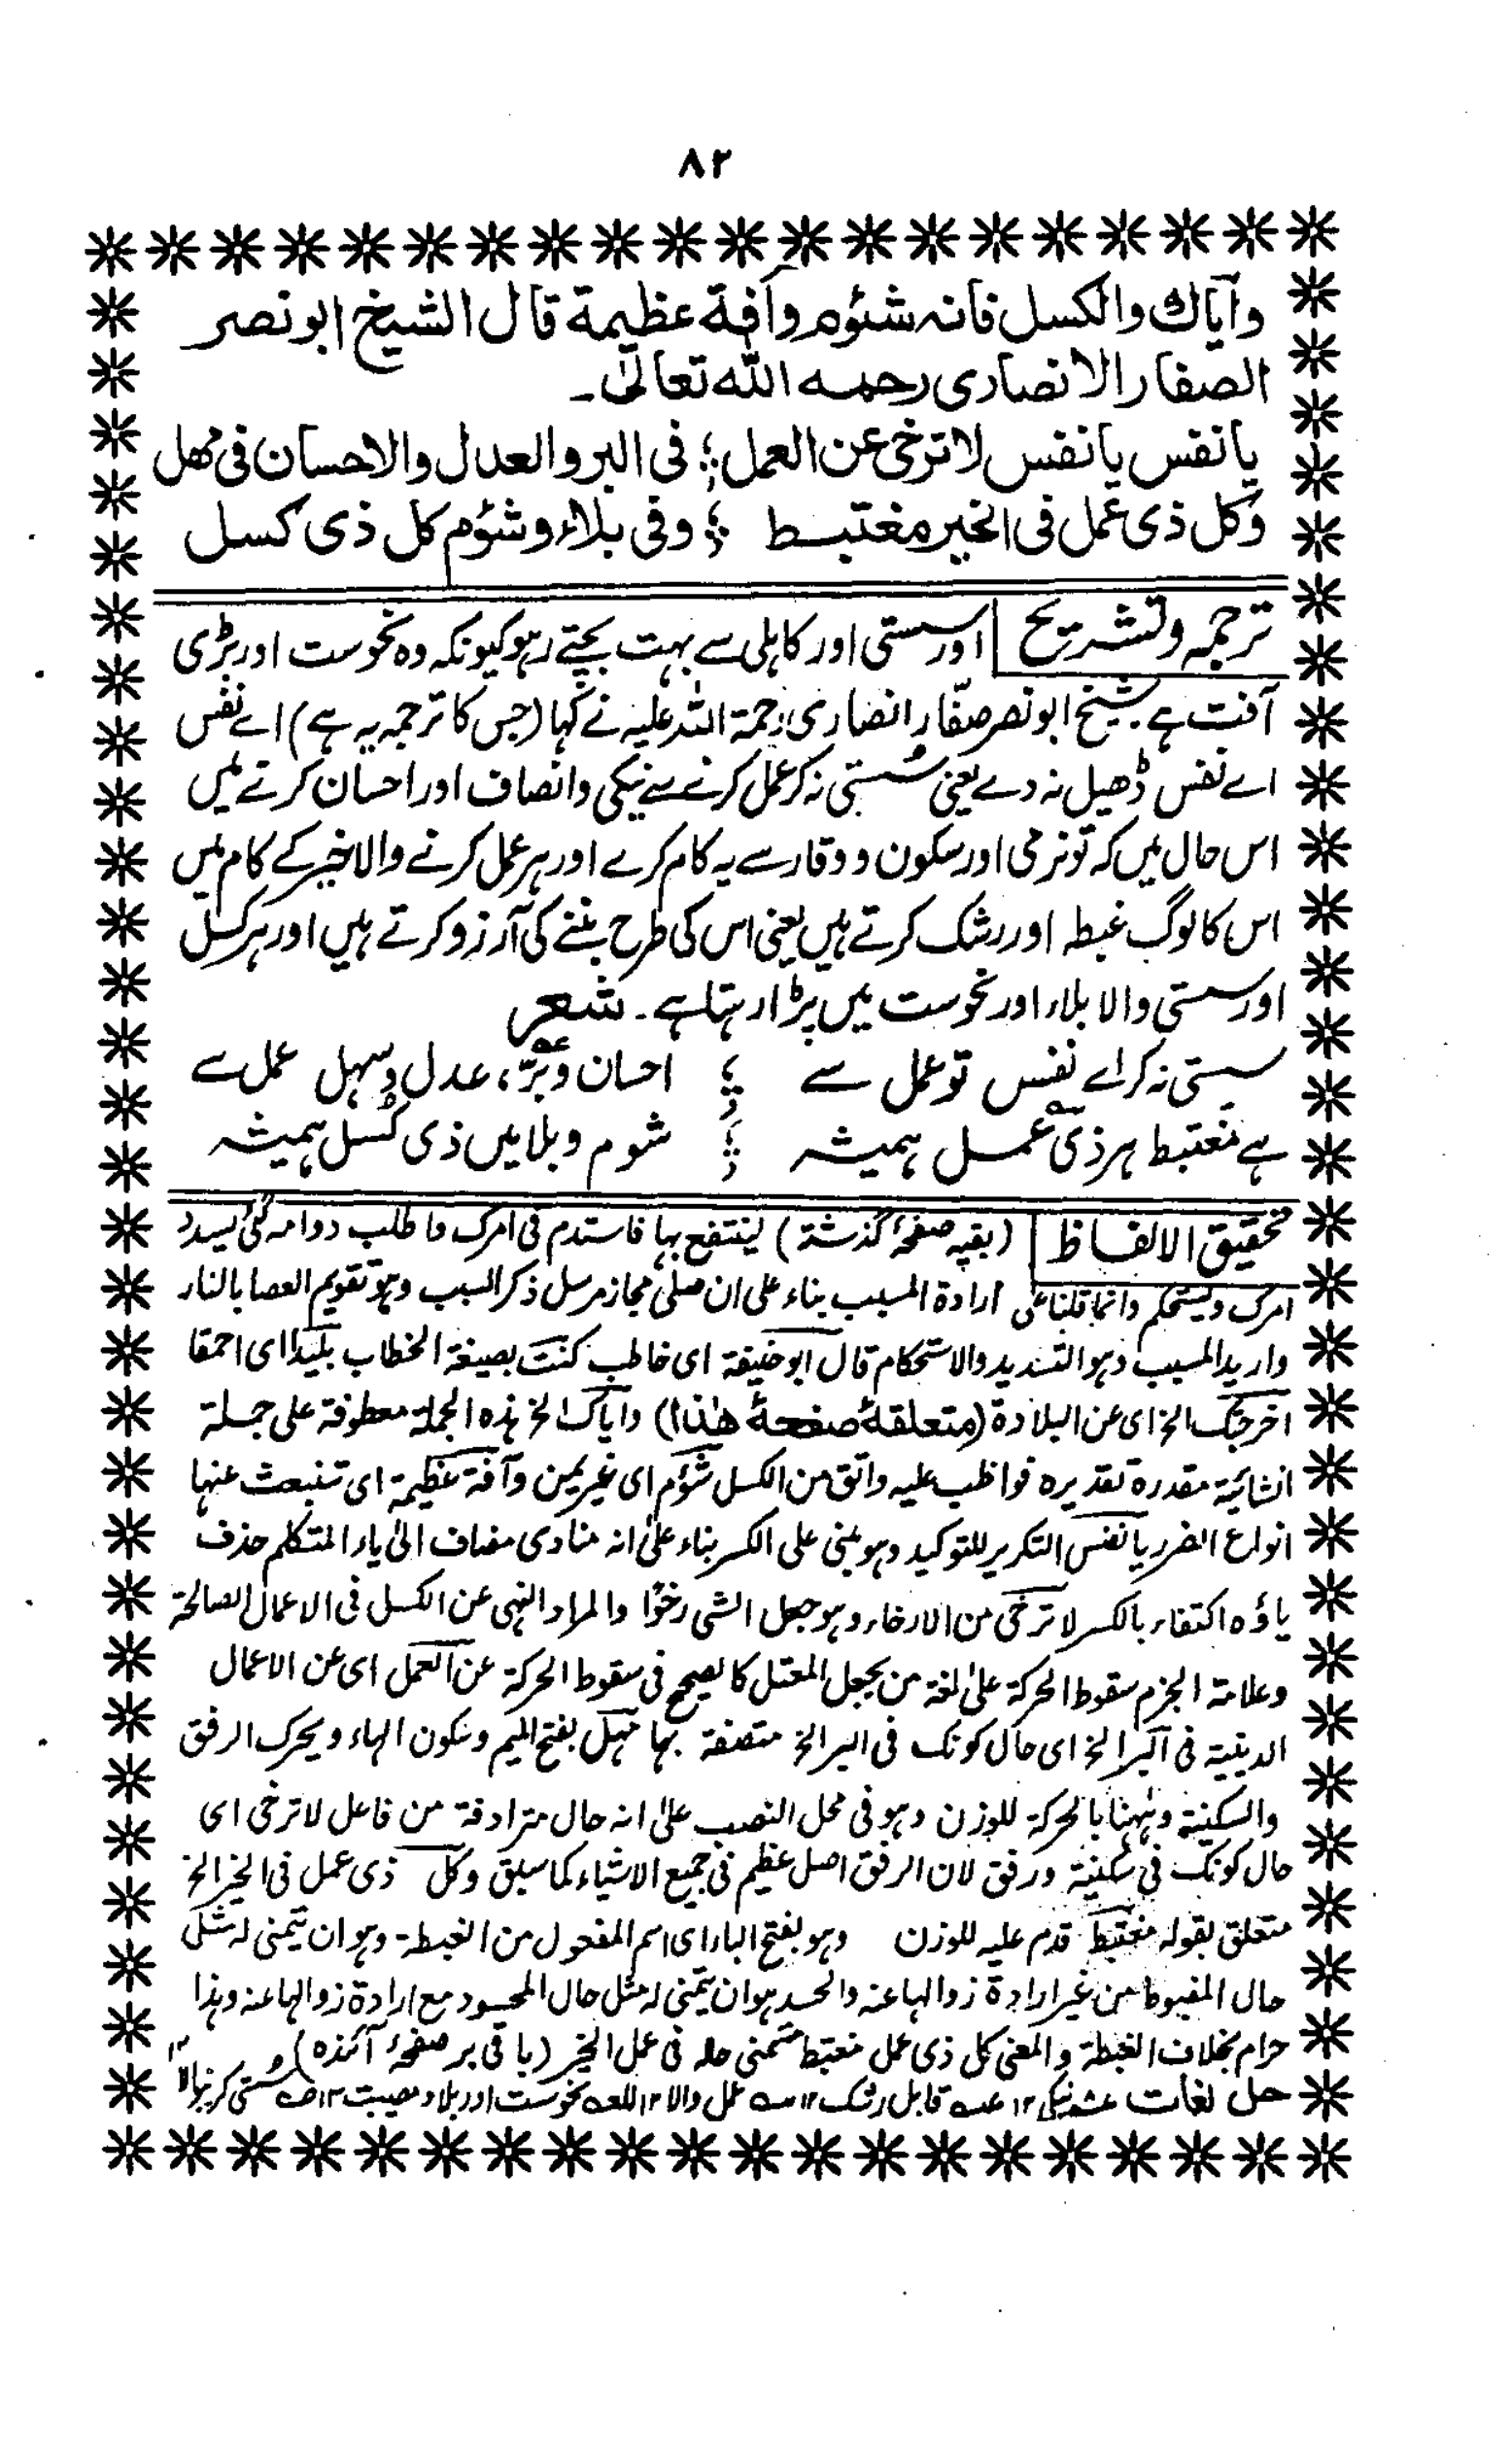 ۸۲
وایاك والکسل فانہ شئوم وآفة عظیمة قال الشیخ ابو نصر
الصفار الانصاری رحمہ اللہ تعالیٰ۔
یا نفس یا نفس لا ترخی عن العمل ؛ فی البر والعدل والاحسان فی مھل
وکل ذی عمل فی الخیر مغتبط ؛ وفی بلاء وشئوم کل ذی کسل
ترجمہ وتشریح اور سستی اور کاہلی سے بہت بچتے رہو کیونکہ وہ نحوست اور بڑی
آفت ہے شیخ ابو نصر صفّار انصاری رحمۃ اللہ علیہ نے کہا (جس کا ترجمہ یہ ہے) اے نفس
اے نفس ڈھیل نہ دے یعنی سستی نہ کر عمل کرنے سے نیکی وانصاف اور احسان کرتے میں
اس حال میں کہ تو نرمی اور سکون ووقار سے یہ کام کرے اور ہر عمل کرنے والا خیر کے کام میں
اس کا لوگ غبطہ اور رشک کرتے ہیں یعنی اس کی طرح بننے کی آرزو کرتے ہیں اور ہر کسل
اور سستی والا بلاء اور نحوست میں پڑا رہتا ہے۔ شعر
سستی نہ کر اے نفس تو عمل سے ؛ احسان وبرّ، عدل وسہل عمل سے
ہے مغتبط ہر ذی عمل ہمیشہ ؛ شوم وبلا میں ذی کسل ہمیشہ
تحقیق الالفاظ (بقیہ صفحۂ گذشتہ) لینتفع بہا فاستدم فی امرک ما طلب دوامہ کئی یسدد
امرک ویستحکم وانما قلنا علی ارادة المسبب بناء علی ان صلی مجاز مرسل ذکر السبب وہو تقویم العصا بالنار
وارید المسبب وہو التسدید والاستحکام قال ابو حنیفة ای خاطب کنت بصیغة الخطاب بلیدا ای احمقا
اخرجتک الخ ای عن البلادة (متعلقۂ صفحۂ ھٰذا) وایاک الخ ہذہ الجملة معطوفة علی جملة
انشائیة مقدرة تقدیرہ فواظب علیہ واتق من الکسل شؤم ای غیر یمین وآفة عظیمة ای تنبعث عنہا
انواع الضرر یا نفس التکریر للتوکید وہو مبنی علی الکسر بناء علیٰ انہ منادی مضاف الیٰ یاء المتکلم حذف
یاؤہ اکتفاء بالکسر لا ترخی من الارخاء وہو جعل الشی رخوًا والمراد النہی عن الکسل فی الاعمال الصالحة
وعلامة الجزم سقوط الحرکة علیٰ لغة من یجعل المعتل کالصحیح فی سقوط الحرکة عن العمل ای عن الاعمال
الدینیة فی البر الخ ای حال کونک فی البر الخ متصفة بہا مہل بفتح المیم وسکون الہاء ویحرک الرفق
والسکینة وہٰہنا بالحرکة للوزن وہو فی محل النصب علیٰ انہ حال مترادفة من فاعل لا ترخی ای
حال کونک فی سکینة ورفق لان الرفق اصل عظیم فی جمیع الاشیاء کما سبق وکل ذی عمل فی الخیر الخ
متعلق بقولہ مغتبط قدم علیہ للوزن وہو بفتح الباء ای اسم المفعول من الغبطة وہو ان یتمنی لہ مثل
حال المغبوط من غیر ارادة زوالہا عنہ والحسد ہو ان یتمنی لہ مثل حال المحسود مع ارادة زوالہا عنہ وہذا
حرام بخلاف الغبطة والمعنی کل ذی عمل مغتبط متمنی حالہ فی عمل الخیر (باقی بر صفحۂ آئندہ)
حل لغات نیکی ۱۲ قابل رشک ۱۲ عمل والا ۱۲ نحوست اور بلاء ومصیبت ۱۲ سستی کرنیوالا ۱۲